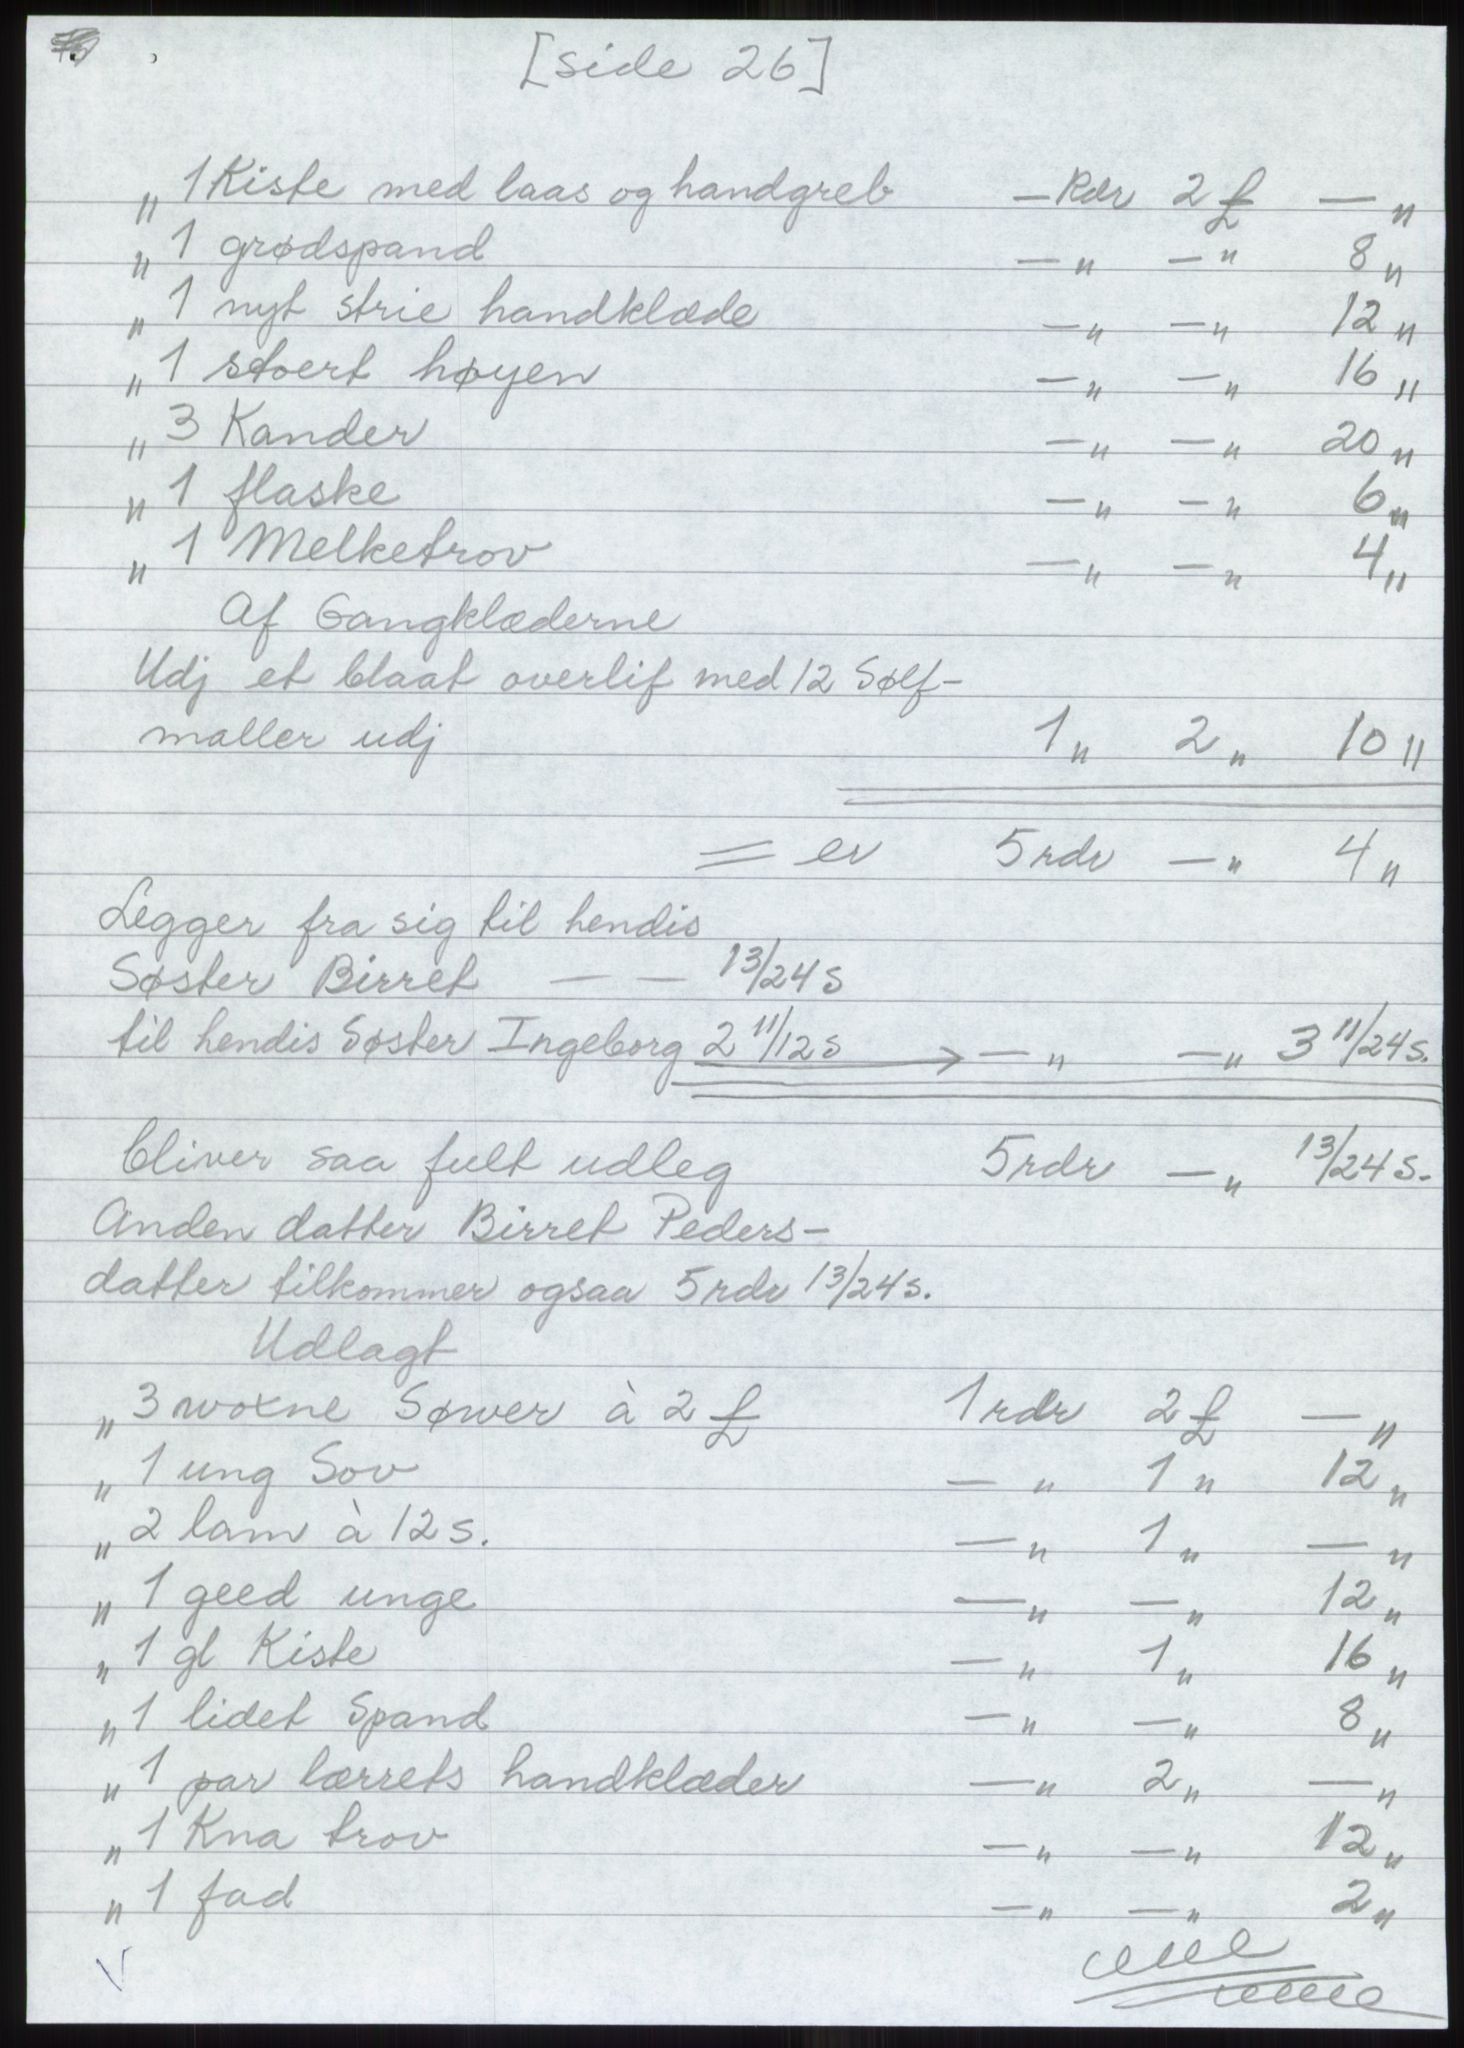 [side 26]
„ 1 Kiste med laas og handgreb — Rdr 2 £ — „
„ 1 grødspand — „ — „ 8 „
„ 1 nyt strie handklæde — „ — „ 12 „
„ 1 stvert høyen — „ — „ 16 „
„ 3 Kander — „ — „ 20 „
„ 1 flaske — „ — „ 6 „
„ 1 Melketrov — „ — „ 4 „
Af Gangklæderne
Udj et blaat overlif med 12 Sølf-
maller udj 1 „ 2 „ 10 „
= er 5 rdr — „ 4 „
Legger fra sig til hendis
Søster Birret — — 13/24 s
til hendis Søster Ingeborg 2 11/12 s → — „ — „ 3 11/24 s.
bliver saa fult udleg 5 rdr — „ 13/24 s.
Anden datter Birret Peders-
datter tilkommer ogsaa 5 rdr 13/24 s.
Udlagt
„ 3 woxne Søwer à 2 £ 1 rdr 2 £ — „
„ 1 ung Sov — „ 1 „ 12 „
„ 2 lam à 12 s. — „ 1 „ — „
„ 1 geed unge — „ — „ 12 „
„ 1 gl Kiste — „ 1 „ 16 „
„ 1 lidet Spand — „ — „ 8 „
„ 1 par lærrets handklæder — „ 2 „ — „
„ 1 Kna trov — „ — „ 12 „
„ 1 fad — „ — „ 2 „